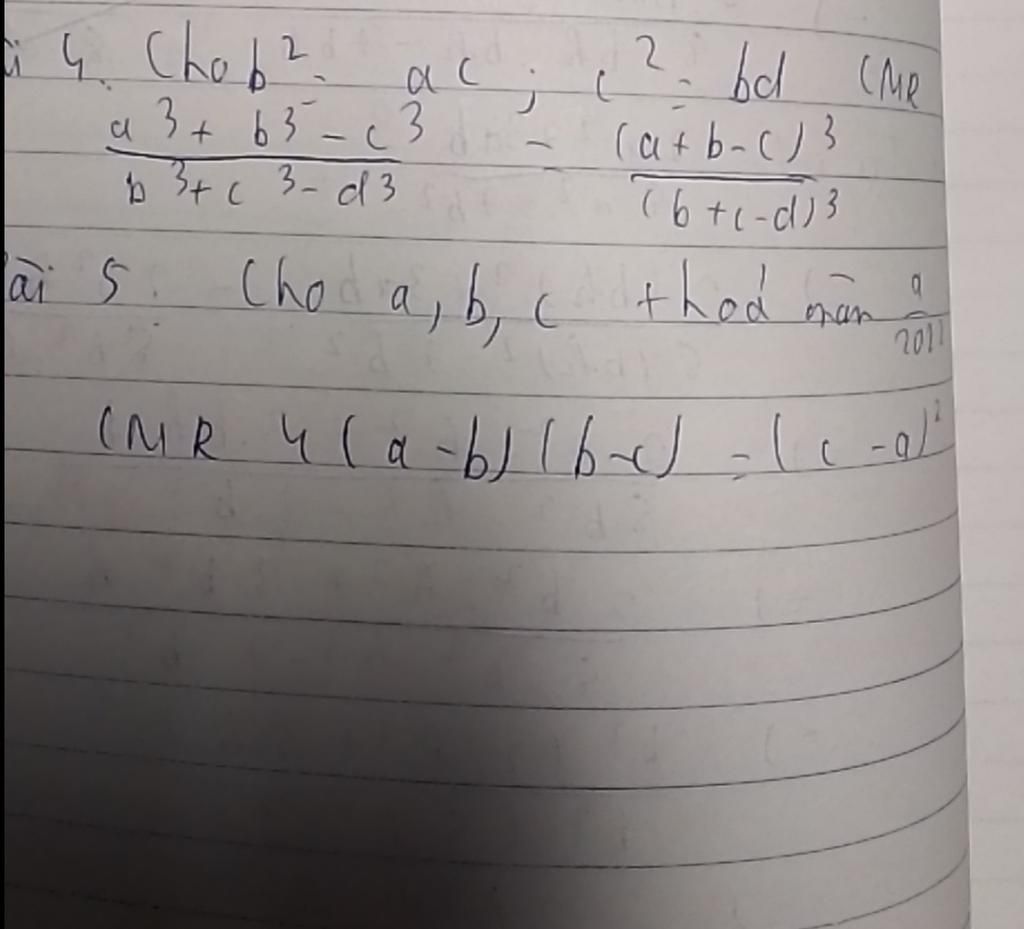 i 4. Cho b² = ac ; c² = bd CMR
a³ + b³ - c³ / b³ + c³ - d³ = (a + b - c)³ / (b + c - d)³
ài 5. Cho a, b, c thoả mãn a
CMR 4(a - b)(b - c) = (c - a)²